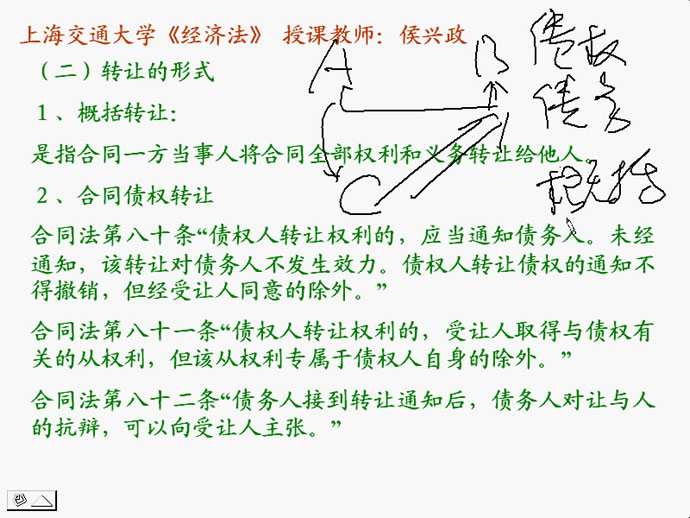 上海交通大学《经济法》 授课教师：侯兴政
（二）转让的形式
A
B
债权
1、概括转让：
债务
是指合同一方当事人将合同全部权利和义务转让给他人。
C
概括
2、合同债权转让
合同法第八十条“债权人转让权利的，应当通知债务人。未经
通知，该转让对债务人不发生效力。债权人转让债权的通知不
得撤销，但经受让人同意的除外。”
合同法第八十一条“债权人转让权利的，受让人取得与债权有
关的从权利，但该从权利专属于债权人自身的除外。”
合同法第八十二条“债务人接到转让通知后，债务人对让与人
的抗辩，可以向受让人主张。”